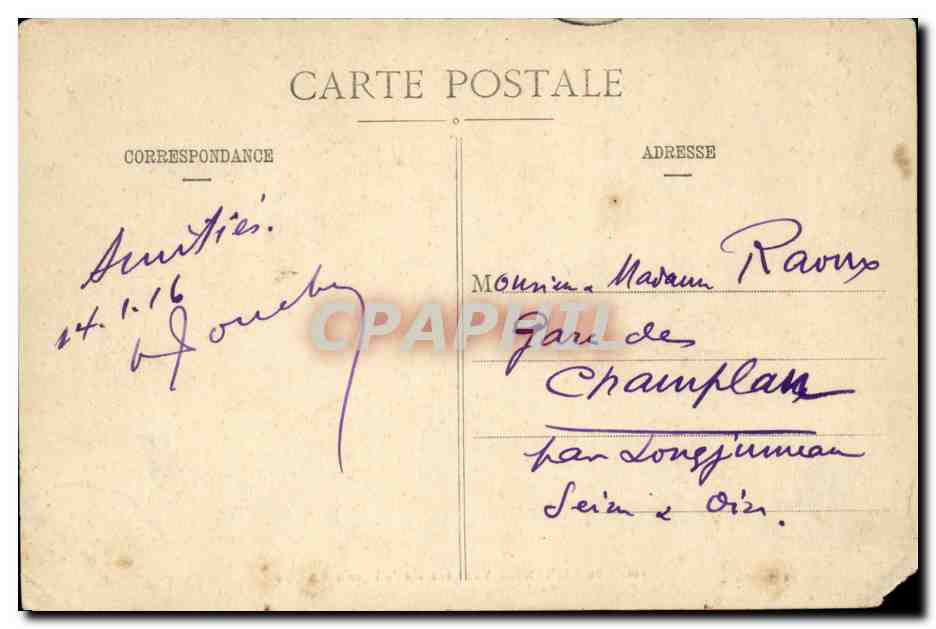 CARTE POSTALE
CORRESPONDANCE
Amitiés.
14.1.16
ADRESSE
Monsieur & Madame Raoux
Gare des
Champlan
par Longjumeau
Seine & Oise.
CPAPHIL